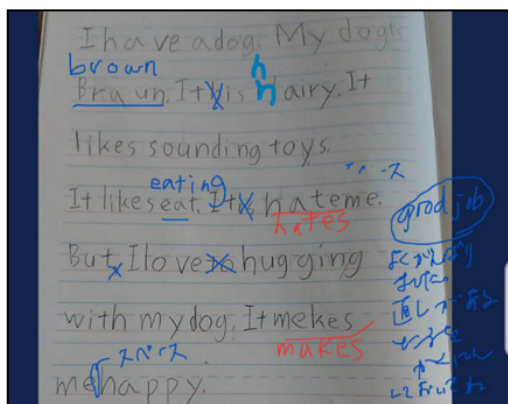 I have a dog. My dog is
brown
h
Braun. It is hairy. It
likes sounding toys.
eating
スペース
It likes eat. It hateme.
hates
good job
But, I love hugging
よくがんばり
ました
with my dog. It mekes
makes
直しが
スペース
mehappy.